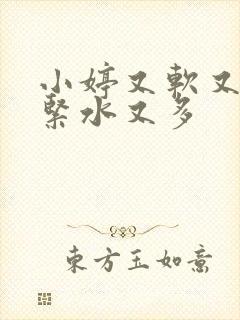 小婷又軟又
緊水又多
東方玉如意